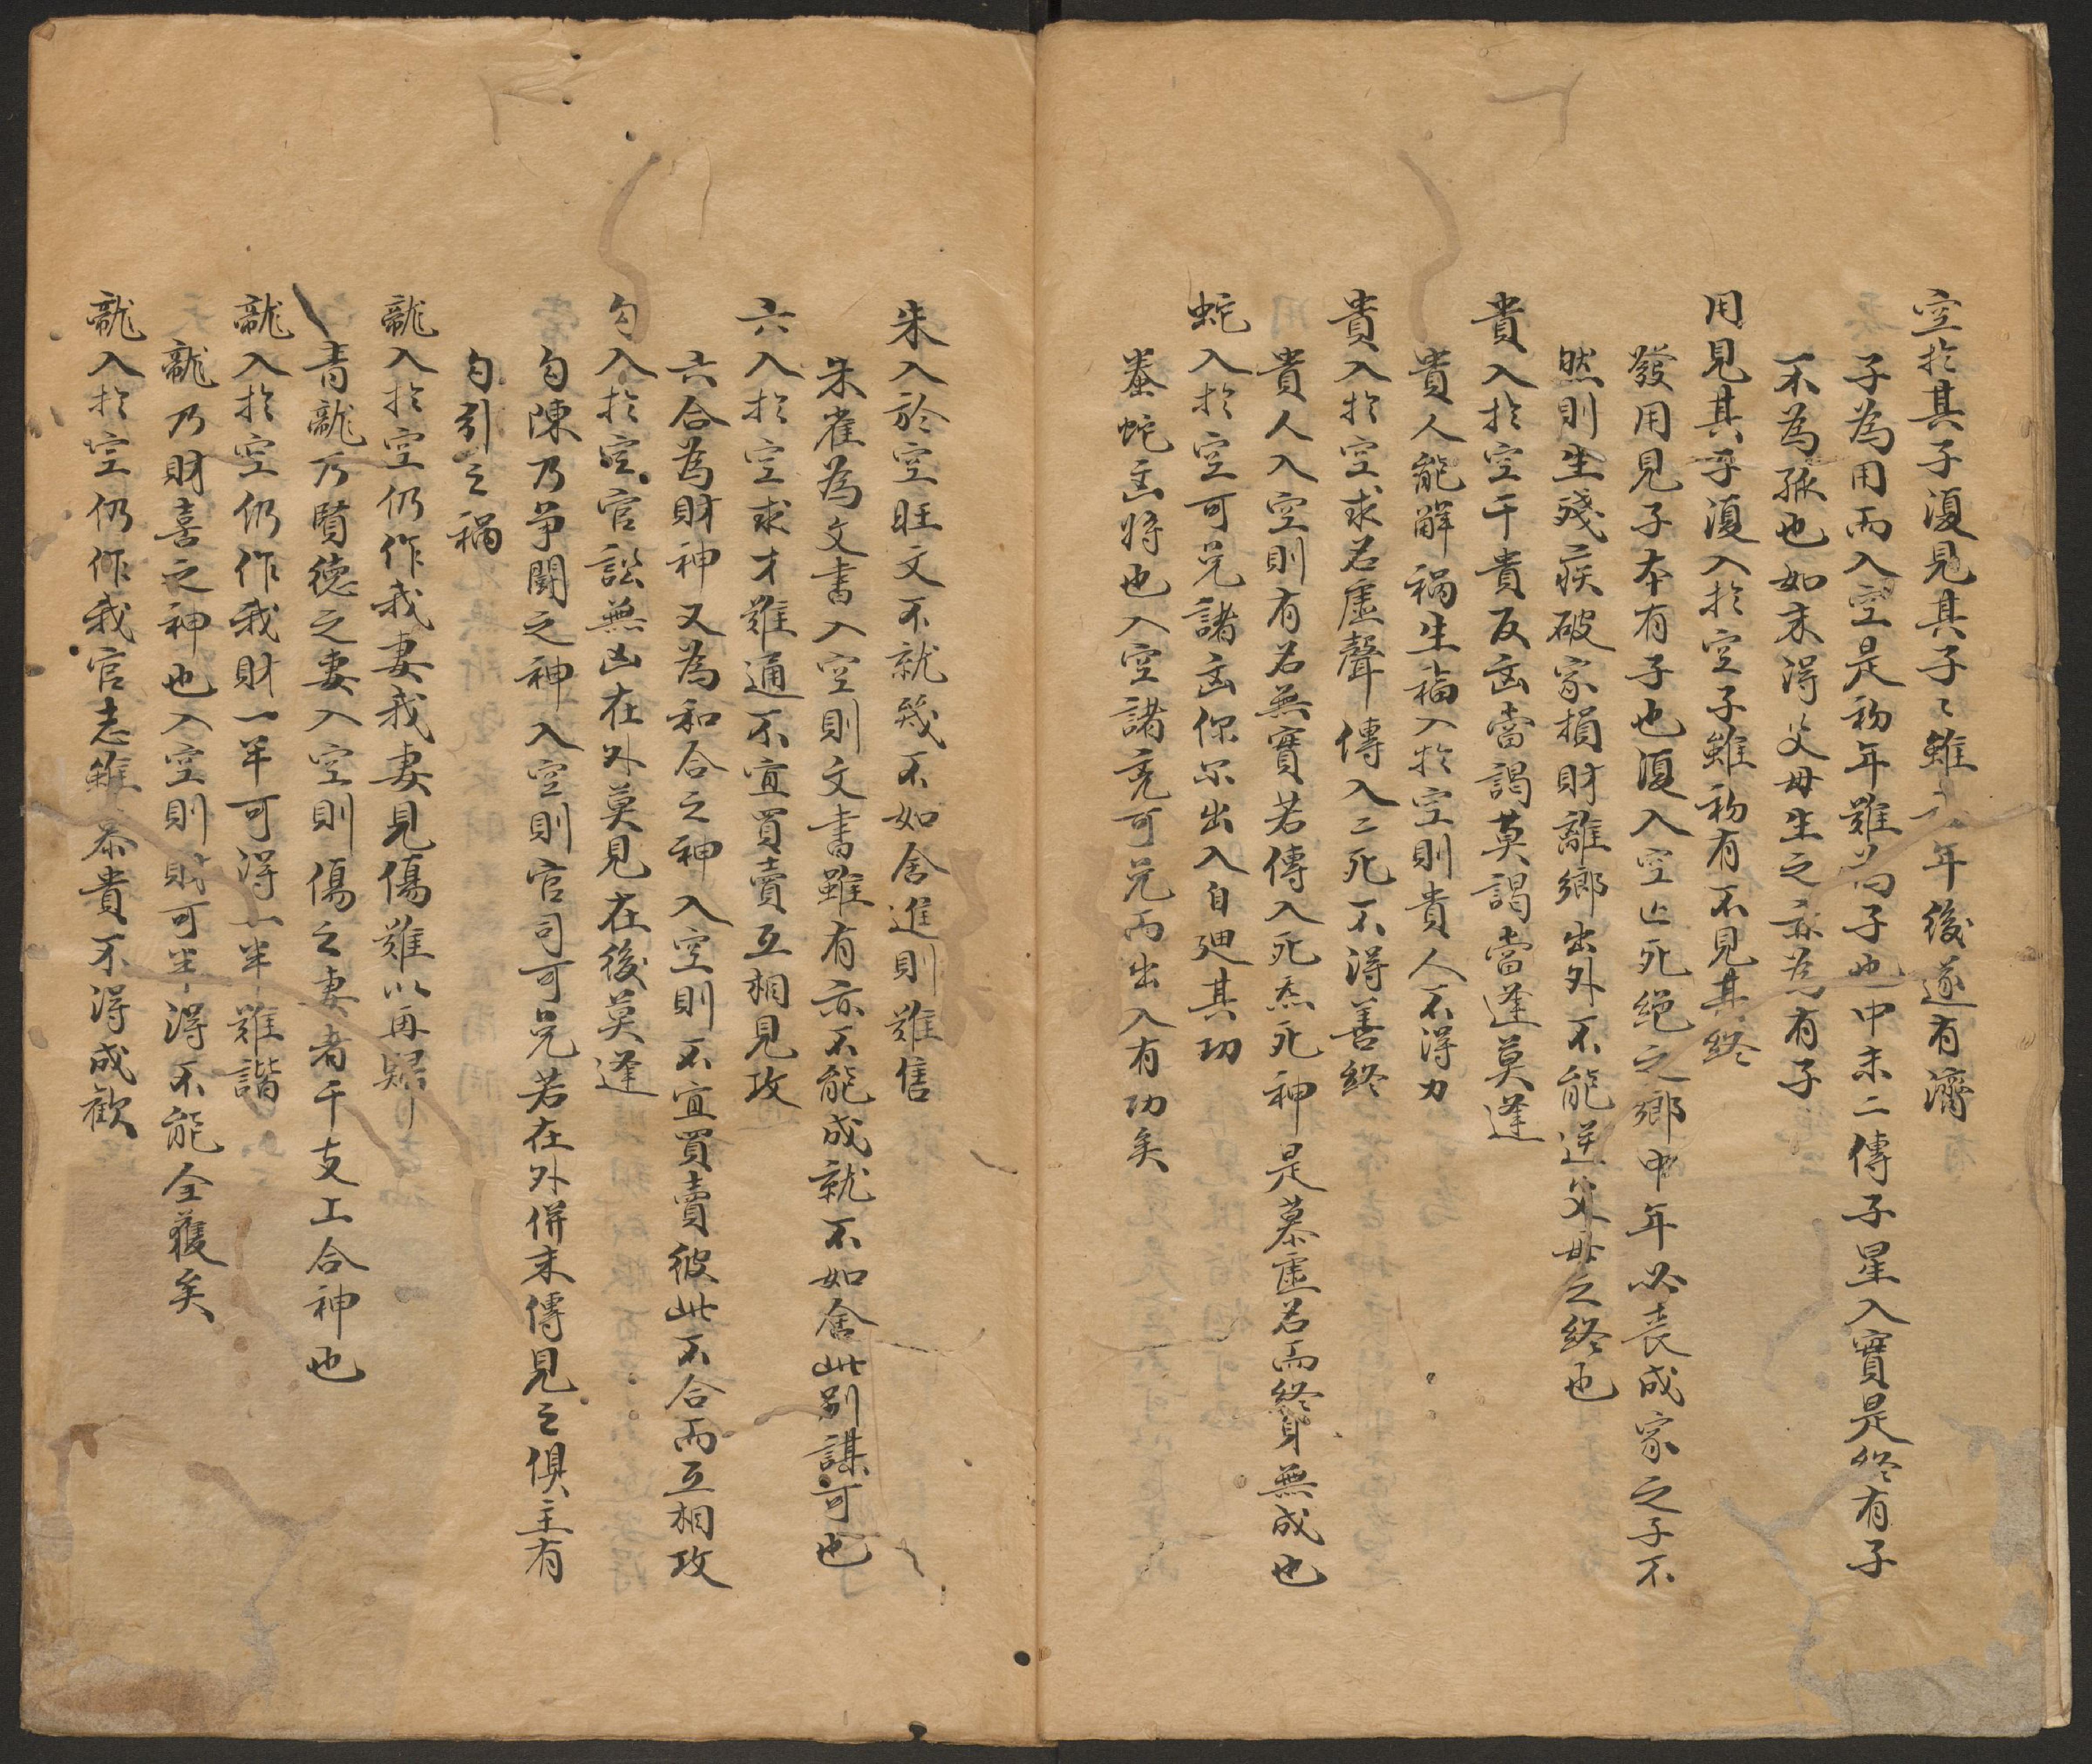 空於其子復見其子〻雖 年後遂有濟
子為用而入空是初年難為子也中末二傳子星入實是終有子
不為孤也如末得父母生之亦為有子
用見其子復入於空子雖初有不見其終
發用見子本有子也復入空亡死絕之鄉中年必喪成家之子不
然則生殘疾破家損財離鄉出外不能送父母之終也
貴入於空干貴反凶當謁莫謁當逢莫逢
貴人能解禍生福入於空則貴人不得力
貴入於空求名虛聲傳入三死不得善終
貴人入空則有名無實若傳入死炁死神是慕虛名而終身無成也
蛇入於空可免諸凶保尔出入自廻其功
螣蛇凶將也入空諸凶可免而出入有功矣
朱入於空旺文不就幾不如舍進則难售
朱雀為文書入空則文書雖有亦不能成就不如舍此别謀可也
六入於空求才难通不宜買賣互相見攻
六合為財神又為和合之神入空則不宜買賣彼此不合而互相攻
勾入於空官訟無凶在外莫見在後莫逢
勾陳乃爭鬪之神入空則官司可免若在外併末傳見之俱主有
勾引之禍
龍入於空仍作我妻我妻見傷难以再歸
青龍乃賢德之妻入空則傷之妻者干支上合神也
龍入於空仍作我財一半可得一半难諧
龍乃財喜之神也入空則財可半得不能全獲矣
龍入於空仍作我官志雖慕貴不得成歡